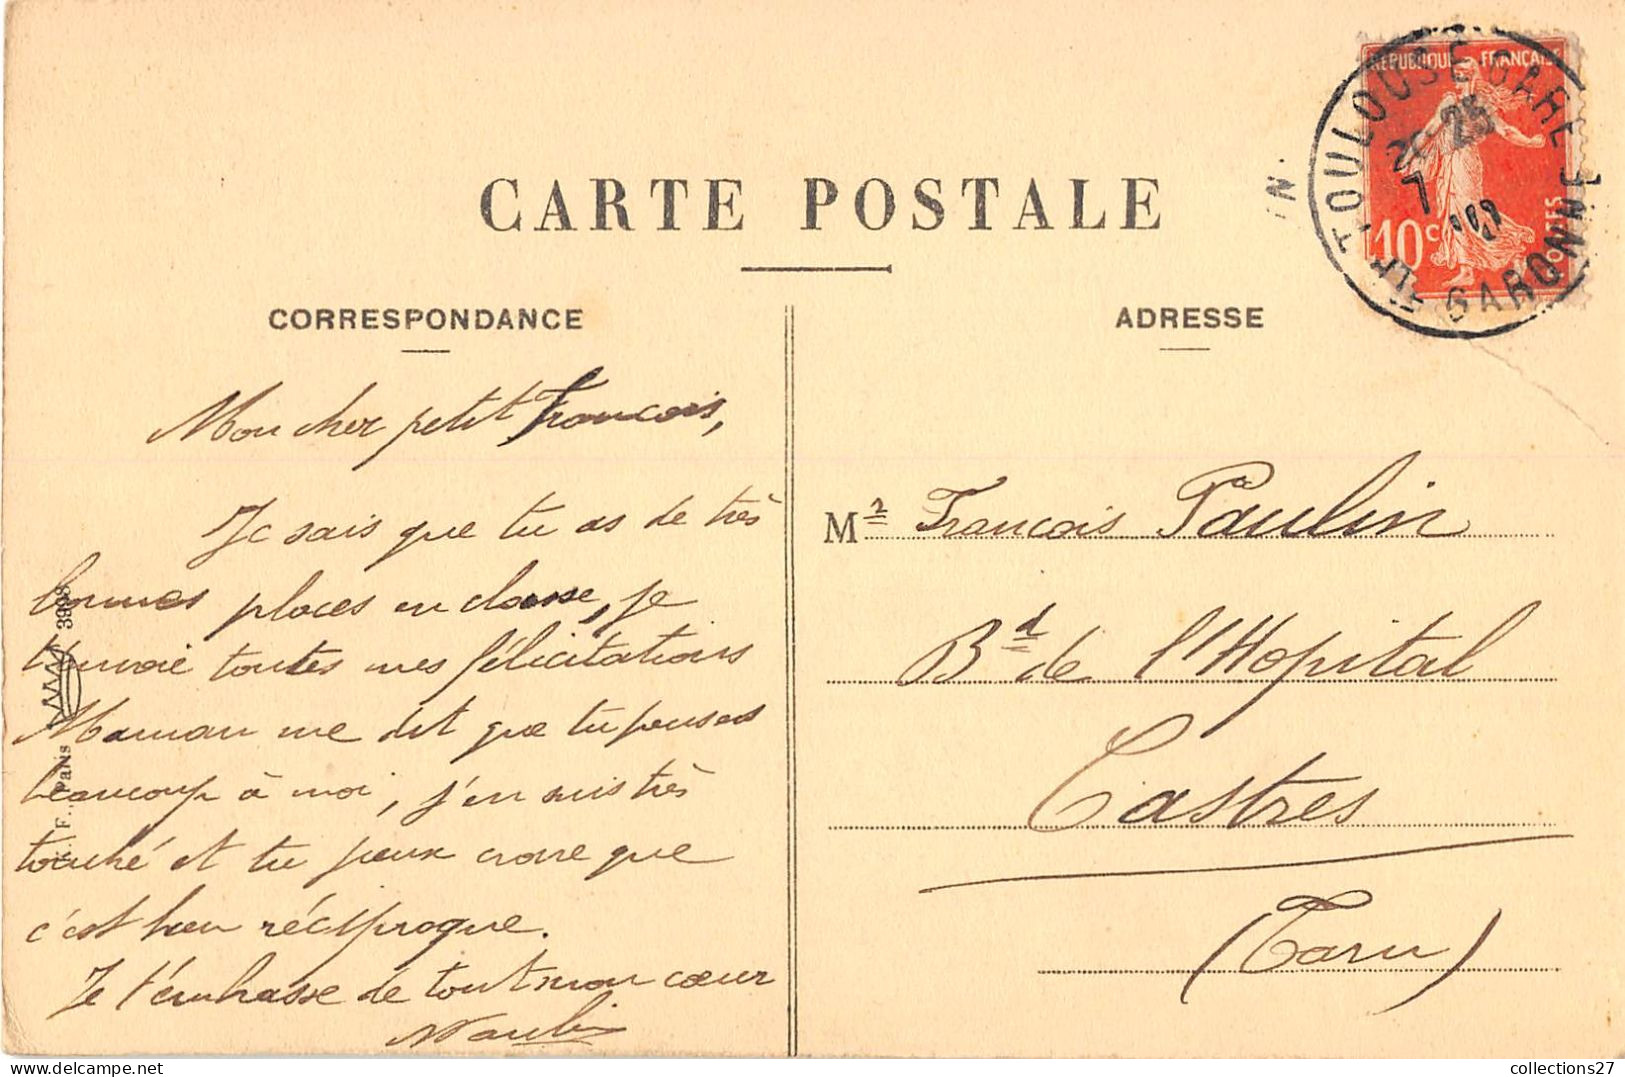 CARTE POSTALE
CORRESPONDANCE
ADRESSE
RÉPUBLIQUE FRANÇAISE
10c
POSTES
TOULOUSE GARE
25
7
GARONNE
Mon cher petit Francois,
Je sais que tu as de très
bonnes places en classe, je
t'envoie toutes mes félicitations
Maman me dit que tu penses
beaucoup à moi, j'en suis très
touché et tu peux croire que
c'est bien réciproque.
Je t'embrasse de tout mon cœur
F., Paris
3998
Mr Francois Paulin
Bd de l'Hopital
Castres
(Tarn)
collections27